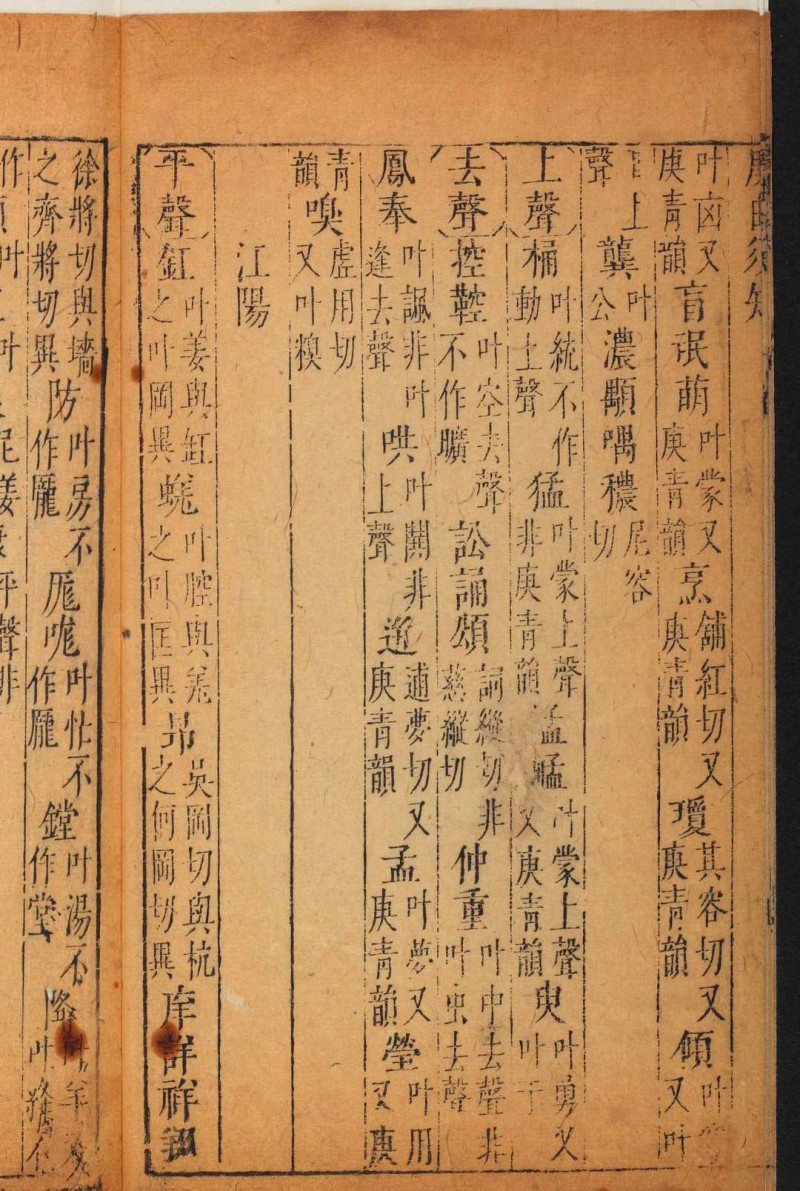 度曲須知
叶囟又庚青韻盲氓萌叶蒙又庚青韻烹鋪紅切又庚青韻瓊其容切又庚青韻傾又叶
上聲龔叶公濃顒喁穠尼容切
上聲桶叶統不作動上聲猛叶蒙上聲非庚青韻艋蜢叶蒙上聲又庚青韻臾叶勇又叶于
去聲控鞚叶空去聲不作曠訟誦頌詞縱切非慈縱切仲重叶中去聲非叶虫去聲
鳳奉叶諷非叶逢去聲哄叶鬨非叶上聲迸逋夢切又庚青韻孟叶夢又庚青韻瑩叶用又庚
青韻嗅虛用切又叶糗
江陽
平聲釭叶姜與缸之叶岡異蜣叶腔與羌之叶匡異昂吳岡切與杭之何岡切異庠詳祥翔
徐將切與墻之齊將切異防叶房不作龐厖咙叶忙不作龐鏜叶湯不作堂